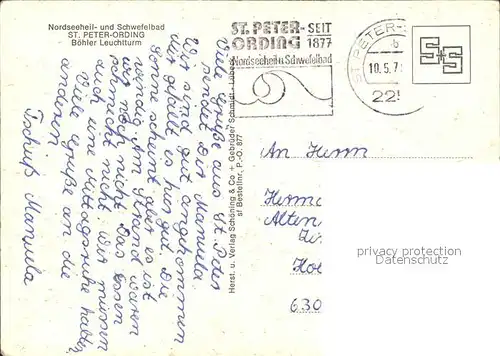 Nordseeheil- und Schwefelbad
ST. PETER-ORDING
Böhler Leuchtturm
ST. PETER-
ORDING
SEIT
1877
Nordseeheil u Schwefelbad
ST. PETER-
b
10.5.7
225
S+S
Viele Grüße aus St. Peter
sendet Dir Manuela.
Wir sind gut angekommen
mir gefällt es hier gut. Die
Sonne scheint aber es ist
windig. Am Strand waren
wir noch nicht. Das Essen
schmeckt nicht. Wir müssen
auch eine Mittagsruhe halten
Viele Grüße an die
anderen.
Tschüß Manuela
Herst. u. Verlag Schöning & Co + Gebrüder Schmidt - Lübeck
sf Bestellnr. P.-O. 877
An Herrn
Herm
Alten
630
privacy protection
Datenschutz